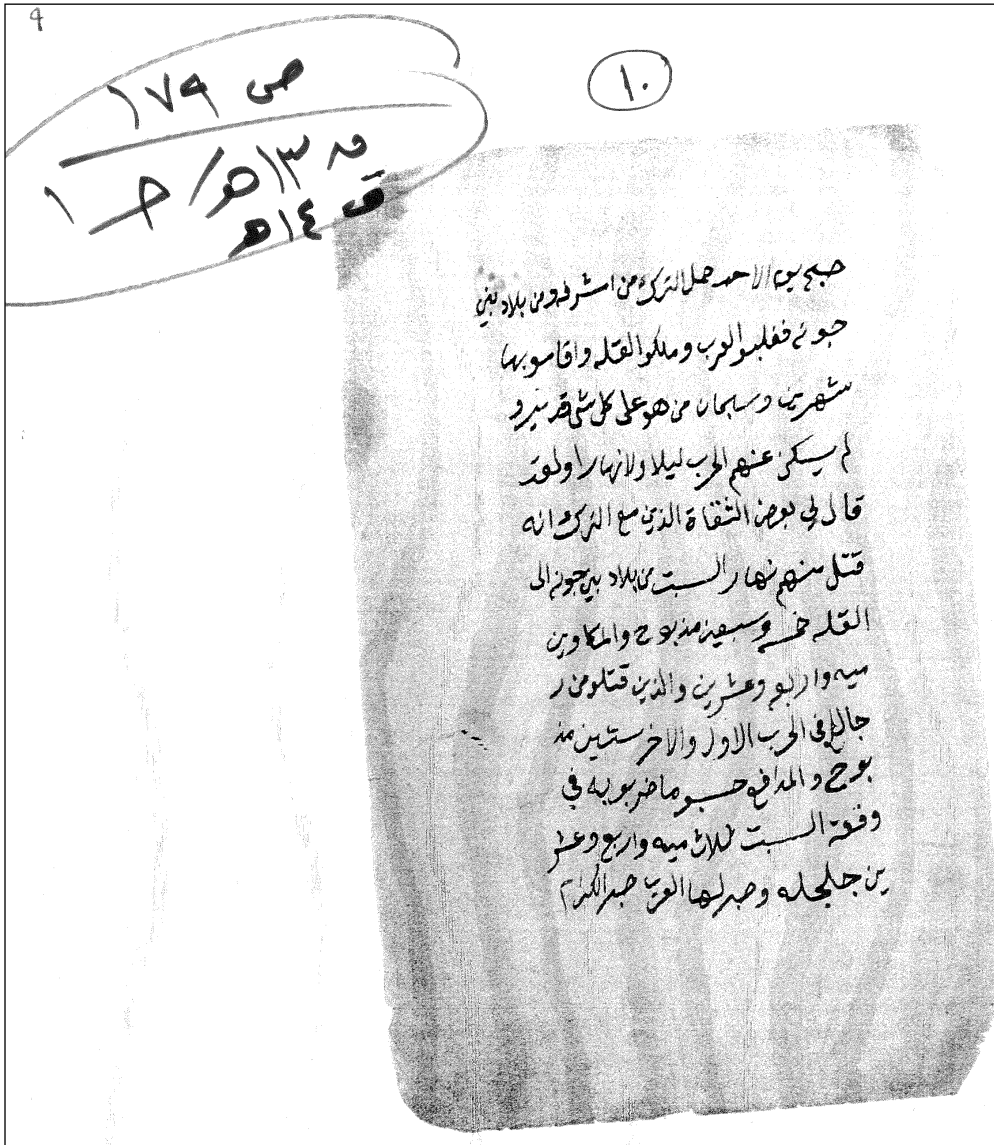 ٩
١٠
ص ١٧٩
ق ١٣ هـ / ج ١
ق ١٤ هـ
صبح يوم الاحد حمل الترك من اشرف ومن بلاد بني
جونه فغلبوا العرب وملكو القله واقامو بها
شهرين وسبحان من هو على كل شي قدير و
لم يسكن عنهم الحرب ليلا ولا نهارا ولقد
قال لي بعض الثقاة الذين مع الترك انه
قتل منهم نهار السبت من بلاد بني جونه الى
القله خمسه وسبعين مذبوح والمكاوين
ميه واربعه وعشرين والذين قتلو من ر
جالع في الحرب الاول والاخر ستين مذ
بوح والمدافع حسبو ما ضربو به في
وقعة السبت ثلاث ميه واربع وعشر
ين جلجله وصبر لها العرب صبر الكرام